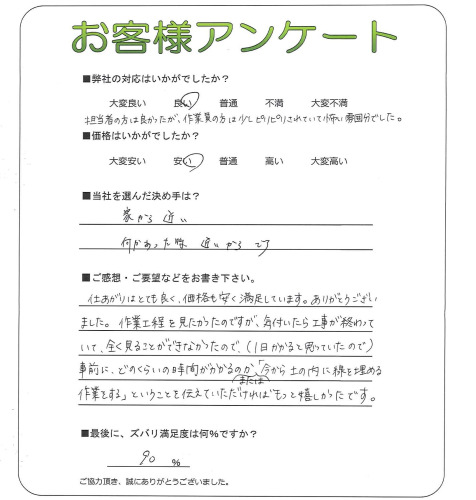 お客様アンケート
■弊社の対応はいかがでしたか？
大変良い 良い 普通 不満 大変不満
担当者の方は良かったが、作業員の方は少しピリピリされていて怖い雰囲気でした。
■価格はいかがでしたか？
大変安い 安い 普通 高い 大変高い
■当社を選んだ決め手は？
家から近い
何かあった時近いからです
■ご感想・ご要望などをお書き下さい。
仕あがりはとても良く、価格も安く満足しています。ありがとうござい
ました。作業工程を見たかったのですが、気付いたら工事が終わって
いて、全く見ることができなかったので、（1日かかると思っていたので）
事前に、どのくらいの時間がかかるのか、「今から土の内に線を埋める
または
作業をする」ということを伝えていただければもっと嬉しかったです。
■最後に、ズバリ満足度は何％ですか？
90 ％
ご協力頂き、誠にありがとうございました。